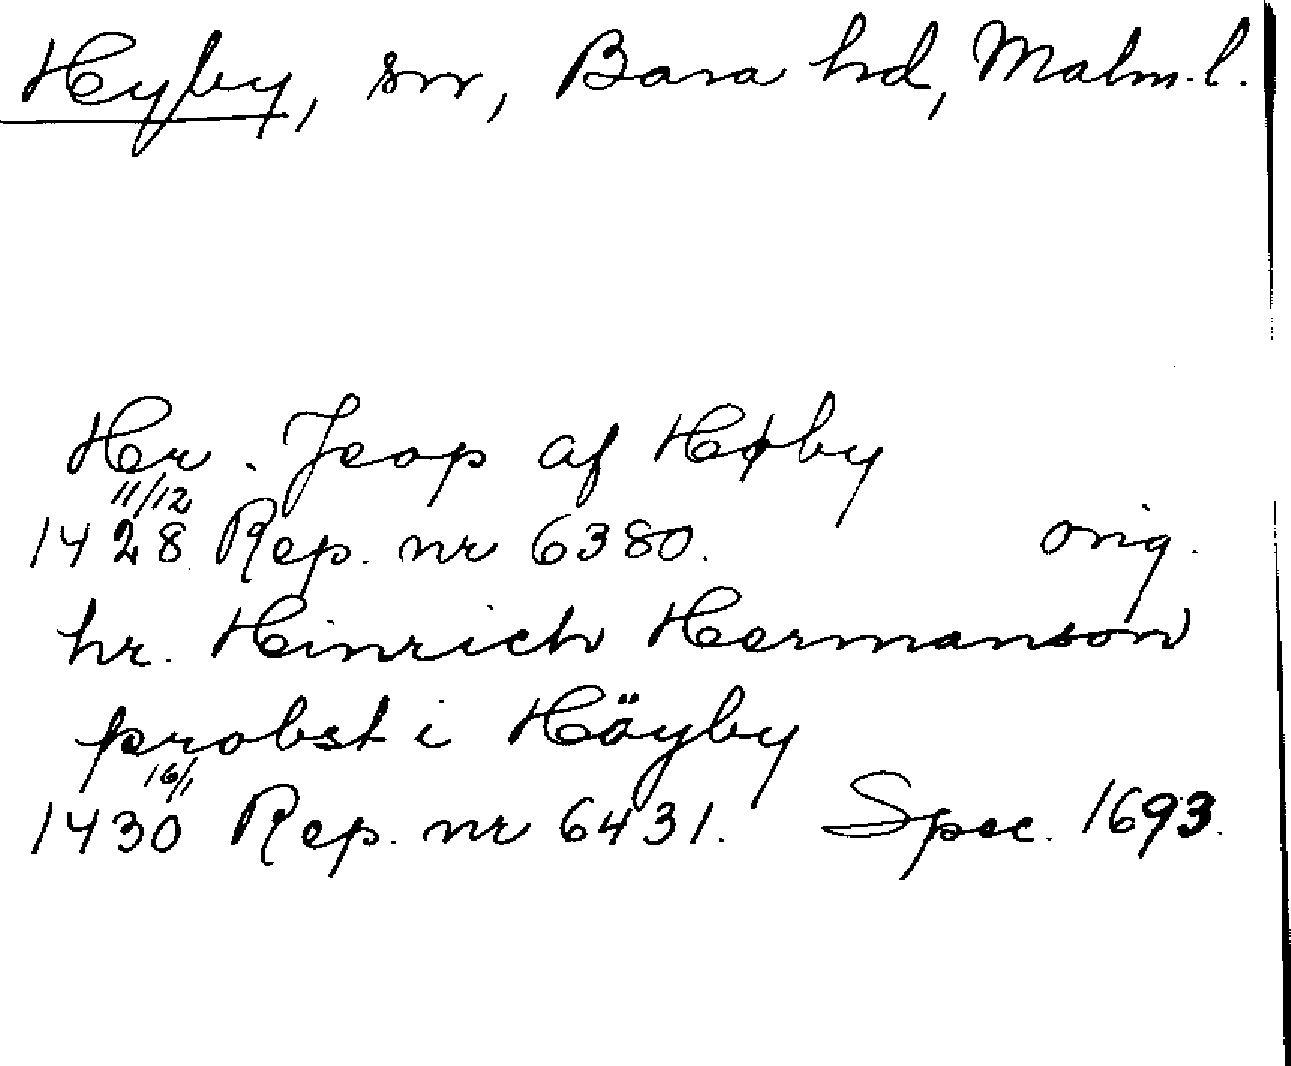 Hyby, sn, Bara hd, Malm. l.
Her. Jeop af Høby
11/12
1428 Rep. nr 6380. orig.
hr. Hinrich Hermanson
probst i Höyby
16/1
1430 Rep. nr 6431. Spec. 1693.